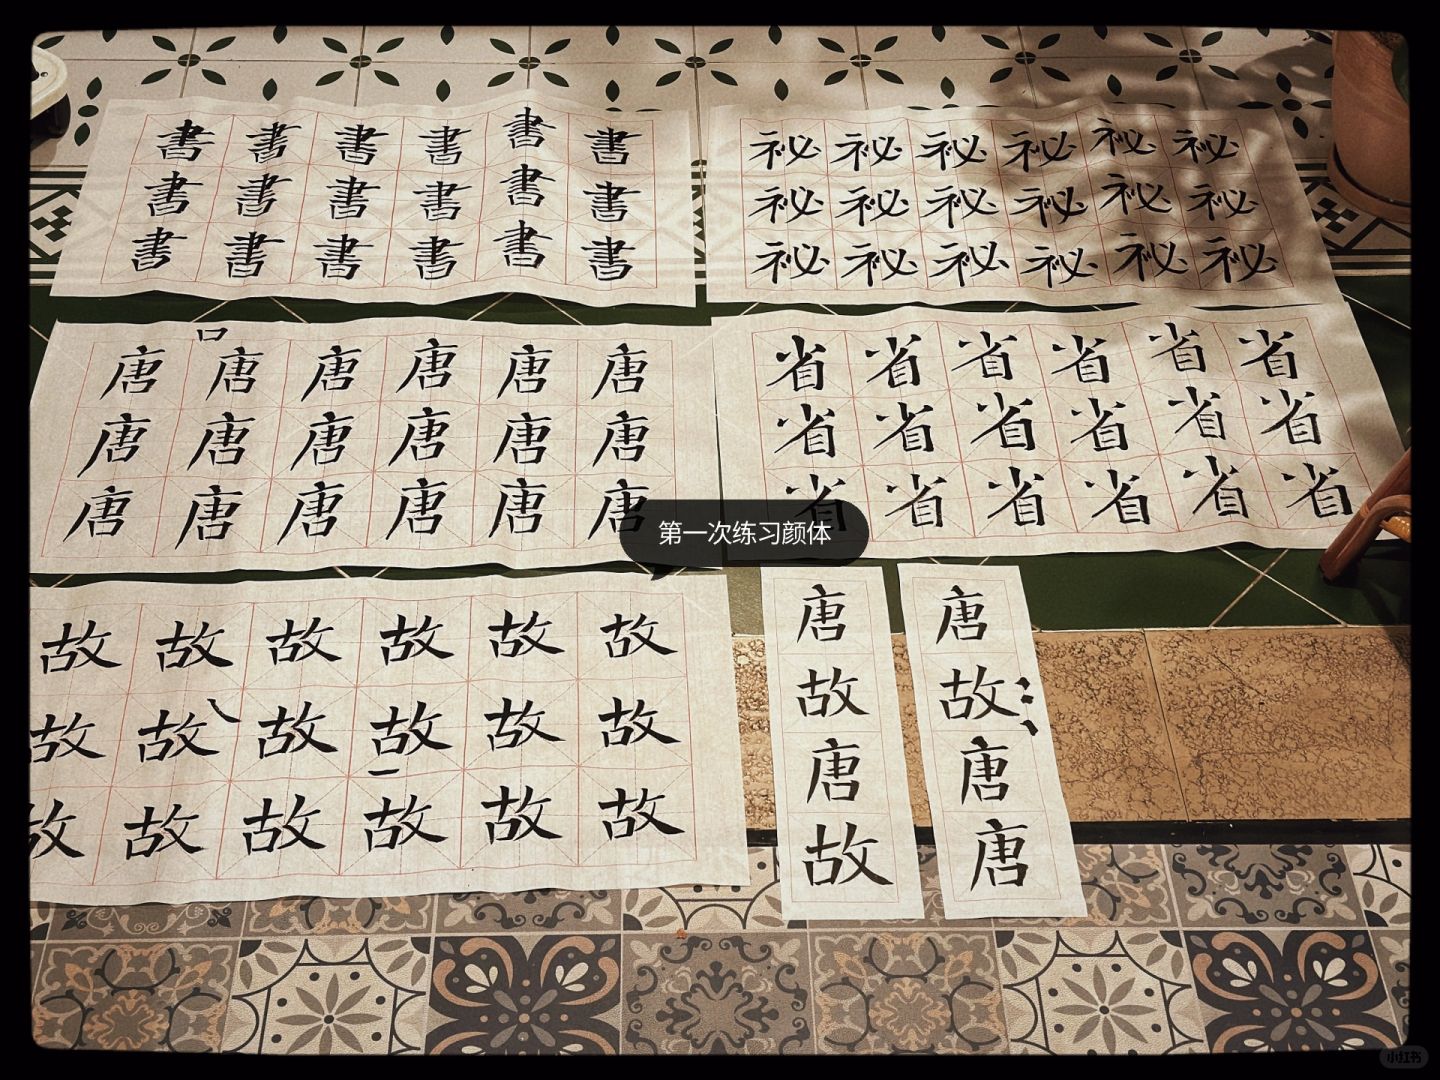 書 書 書 書 書 書
書 書 書 書 書 書
書 書 書 書 書 書
祕 祕 祕 祕 祕 祕
祕 祕 祕 祕 祕 祕
祕 祕 祕 祕 祕 祕
口
唐 唐 唐 唐 唐 唐
唐 唐 唐 唐 唐 唐
唐 唐 唐 唐 唐 唐
省 省 省 省 省 省
省 省 省 省 省 省
省 省 省 省 省 省
第一次练习颜体
故 故 故 故 故 故
故 故 故 故 故 故
故 故 故 故 故 故
唐故唐故
唐故唐唐
小红书